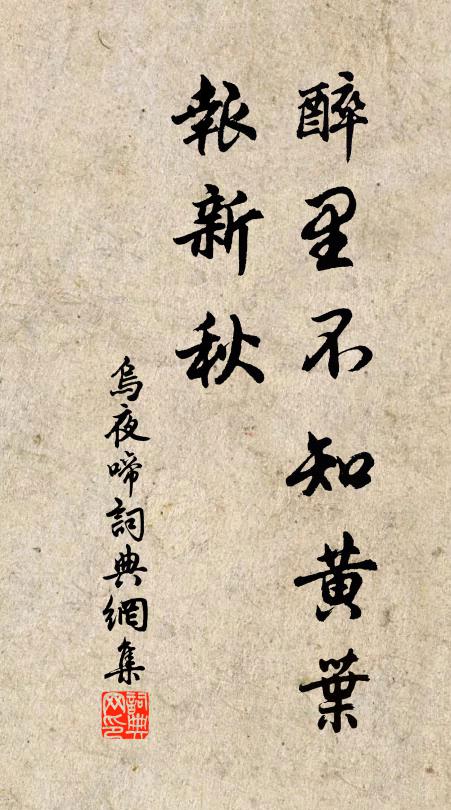 醉里不知黄葉
報新秋
烏夜啼詞典網集
詞典网印